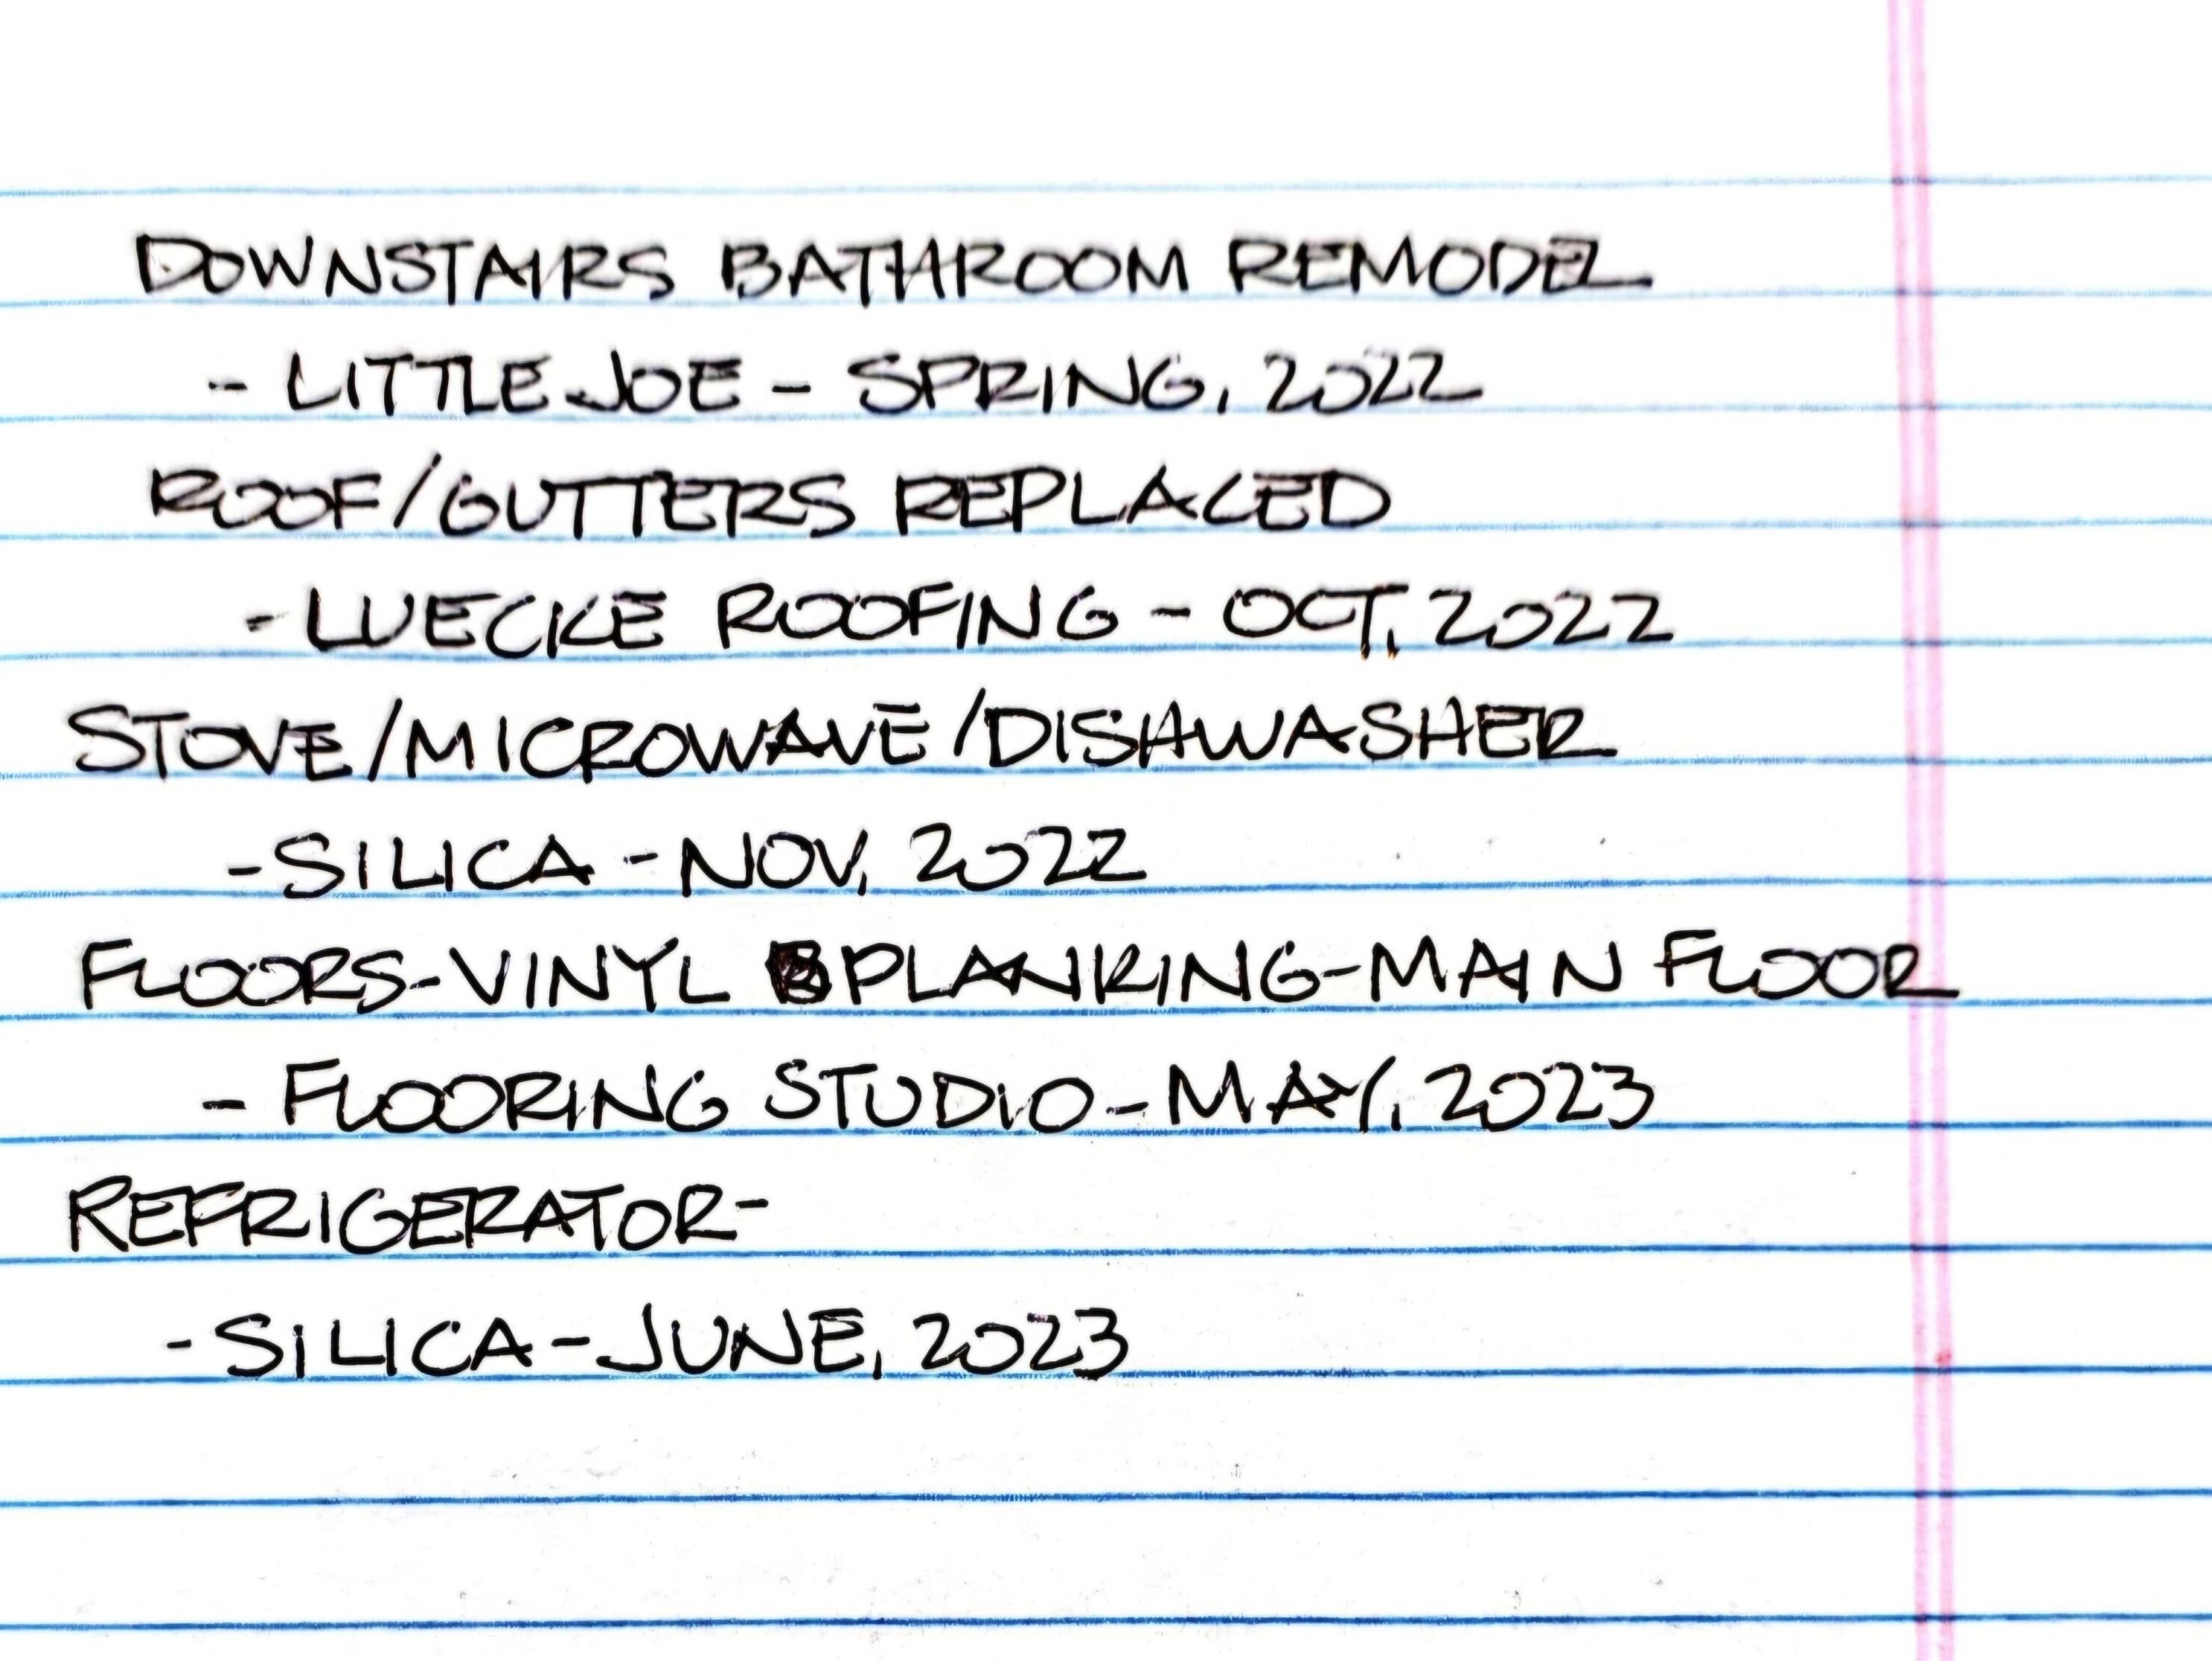 DOWNSTAIRS BATHROOM REMODEL
- LITTLE JOE - SPRING, 2022
ROOF/GUTTERS REPLACED
- LUECKE ROOFING - OCT, 2022
STOVE/MICROWAVE/DISHWASHER
- SILICA - NOV, 2022
FLOORS-VINYL PLANKING-MAIN FLOOR
- FLOORING STUDIO - MAY, 2023
REFRIGERATOR-
- SILICA - JUNE, 2023